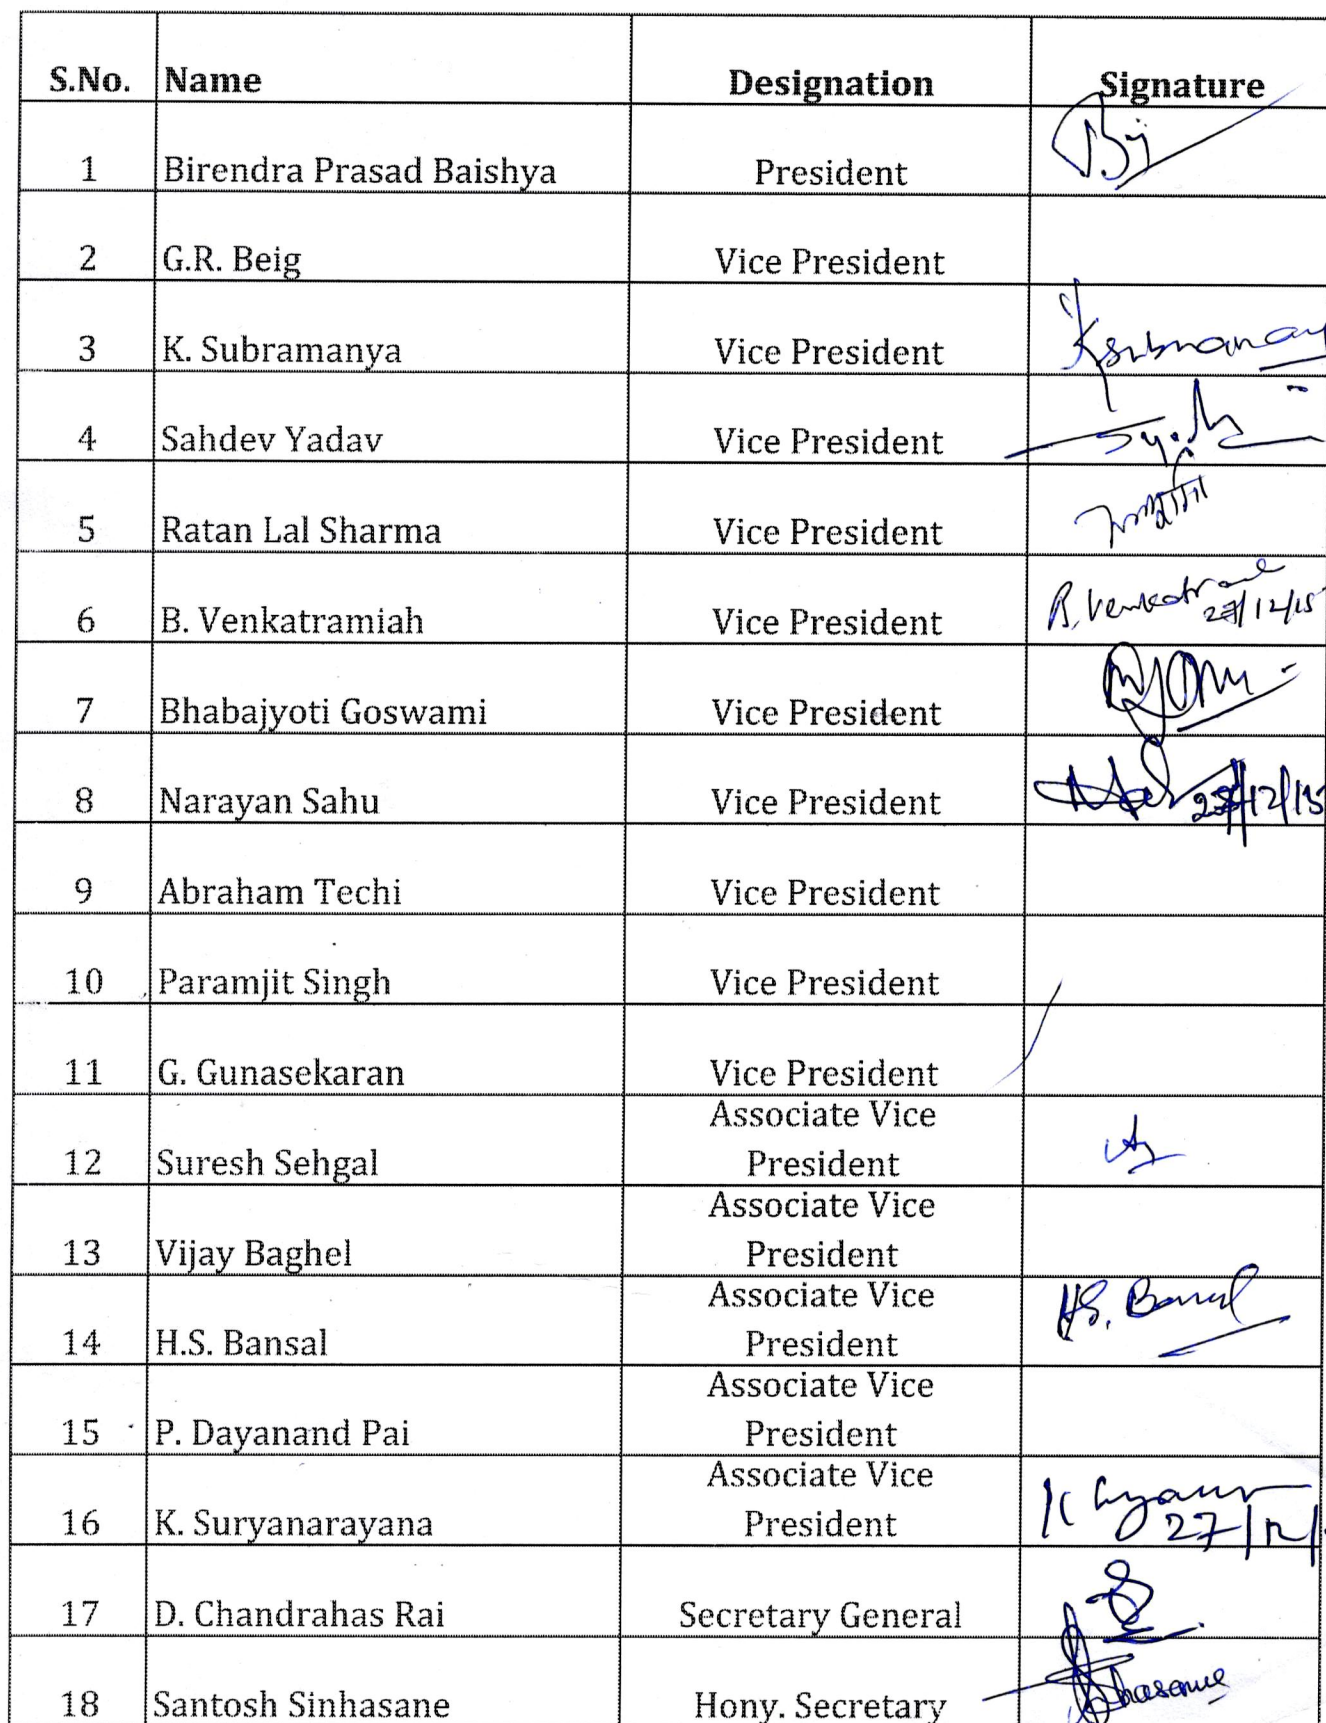 S.No. Name Designation Signature
1 Birendra Prasad Baishya President
2 G.R. Beig Vice President
3 K. Subramanya Vice President
4 Sahdev Yadav Vice President
5 Ratan Lal Sharma Vice President
6 B. Venkatramiah Vice President B. Venkatram
27/12/15
7 Bhabajyoti Goswami Vice President
8 Narayan Sahu Vice President 27/12/15
9 Abraham Techi Vice President
10 Paramjit Singh Vice President
11 G. Gunasekaran Vice President
Associate Vice
12 Suresh Sehgal President
Associate Vice
13 Vijay Baghel President
Associate Vice
14 H.S. Bansal President H.S. Bansal
Associate Vice
15 P. Dayanand Pai President
Associate Vice
16 K. Suryanarayana President
27/12/
17 D. Chandrahas Rai Secretary General
18 Santosh Sinhasane Hony. Secretary